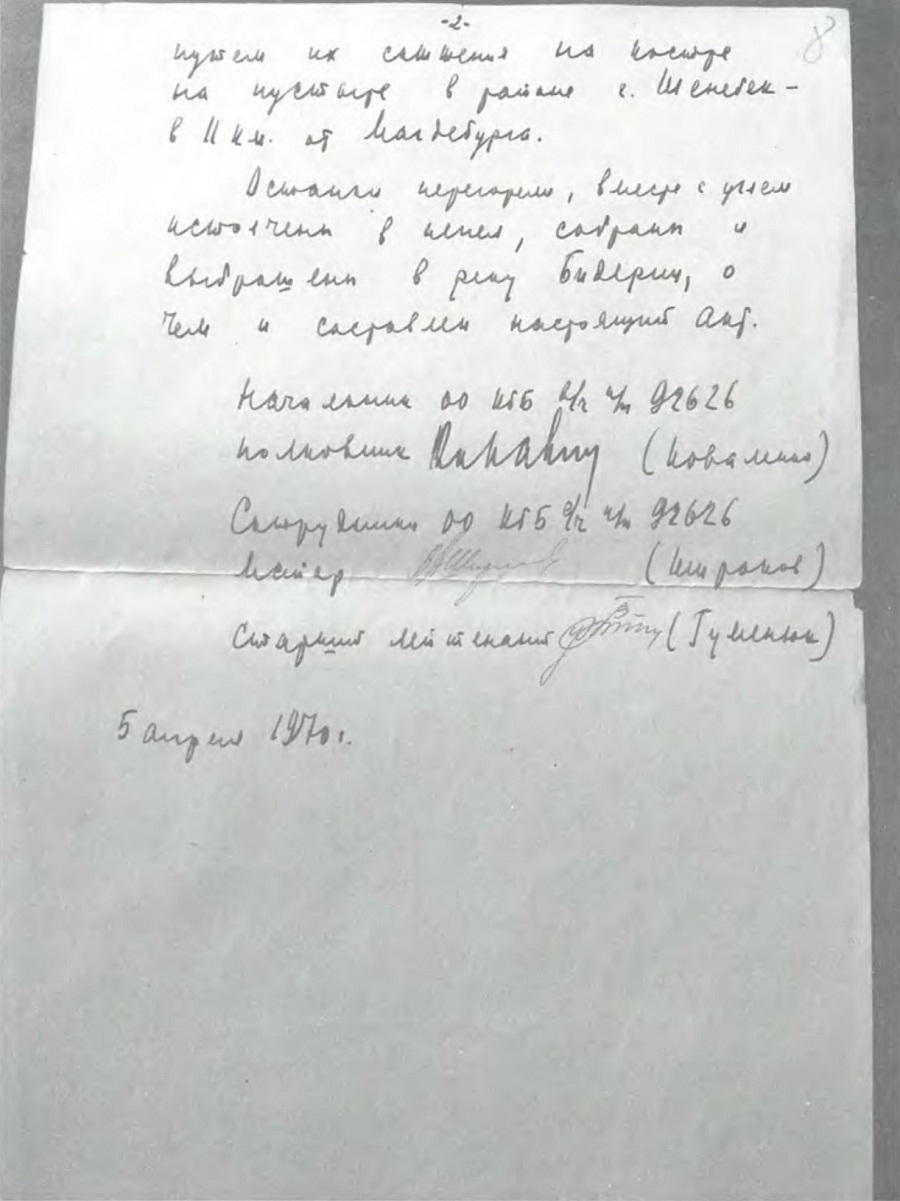 -2-
8
путем их сожжения на костре
на пустыре в районе г. Шенебек -
в 11 км. от Магдебурга.
Останки перегорели, вместе с углем
истолчены в пепел, собраны и
выброшены в реку Бидериц, о
чем и составлен настоящий акт.
Начальник ОО КГБ в/ч п/п 92626
полковник (Коваленко)
Сотрудники ОО КГБ в/ч п/п 92626
майор (Широков)
Старший лейтенант (Гуменюк)
5 апреля 1970 г.